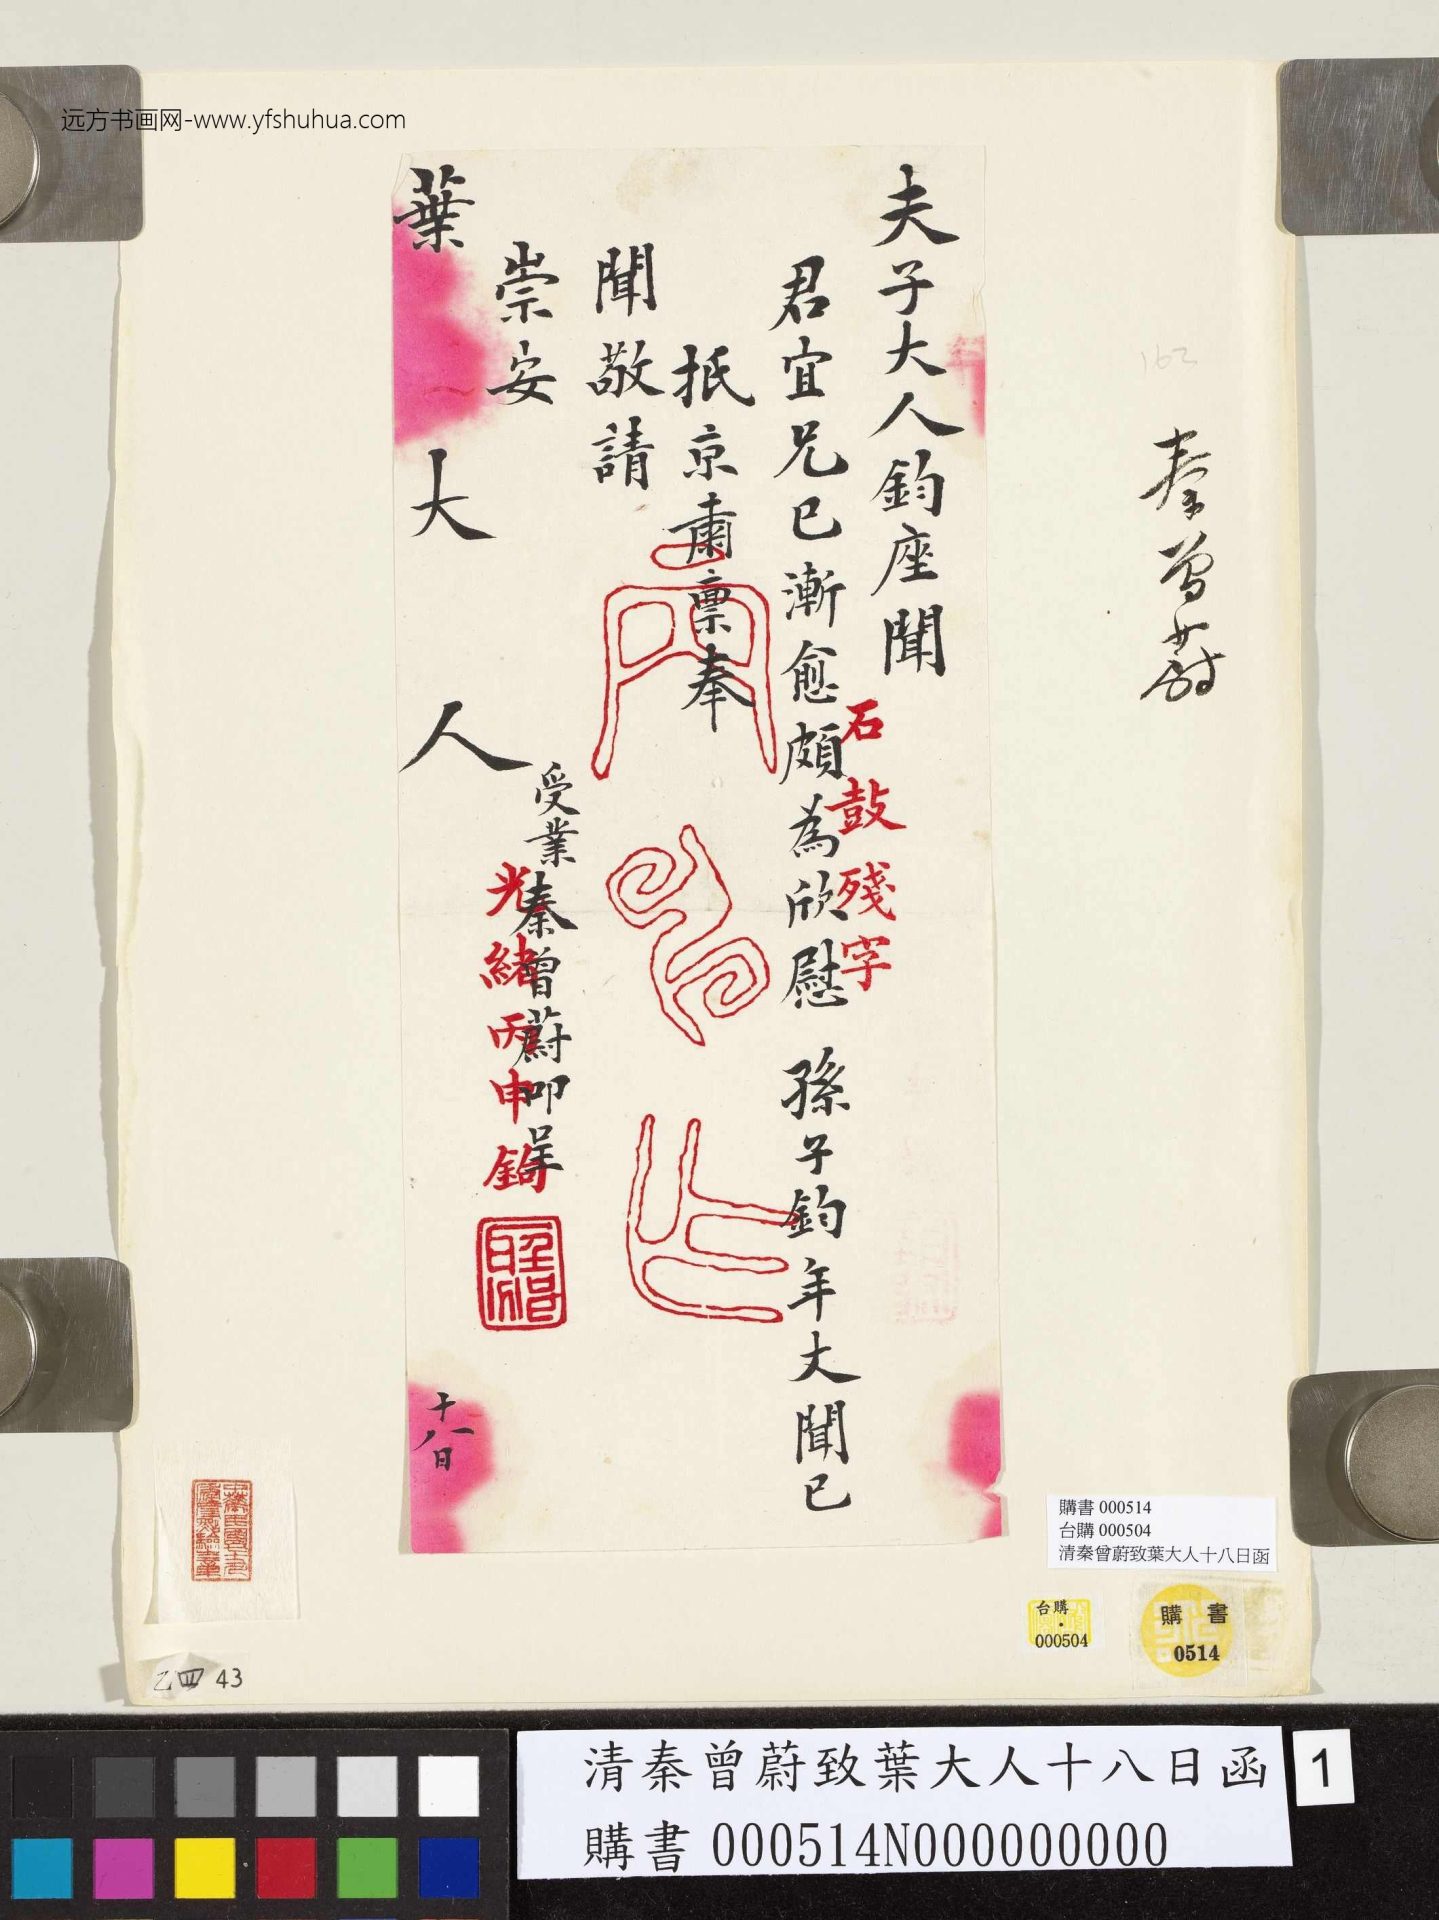 远方书画网-www.yfshuhua.com
夫子大人鈞座聞
君宜兄已漸愈頗為欣慰 孫子鈞年大聞已
抵京肅稟奉
聞敬請
崇安
受業秦曾蔚叩呈
葉大人
十八日
石鼓殘字
光緒丙申鉤
162
秦曾蔚
購書 000514
台購 000504
清秦曾蔚致葉大人十八日函
台購
000504
購書
0514
乙四 43
清秦曾蔚致葉大人十八日函
購書 000514N000000000
1